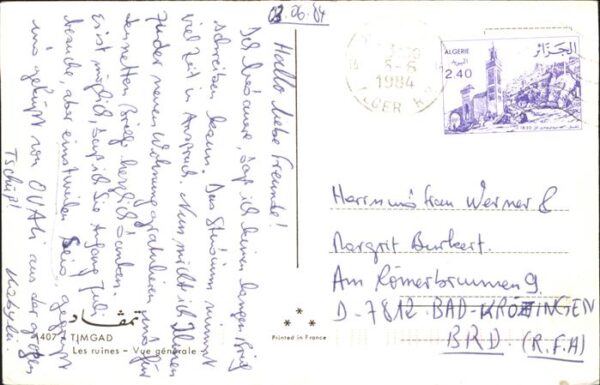 03.06.84
Hallo liebe Freunde!
Ich bedauere, daß ich keinen langen Brief
schreiben kann. Das Studium nimmt
viel Zeit in Anspruch. Nun möcht ich Ihnen
zu der neuen Wohnung gratulieren und für
den netten Brief herzlich danken.
Es ist möglich, daß ich Sie Anfang Juli
besuche, aber einstweilen seid gegrüßt
und geküßt von OUALI aus der großen
Kabylei.
Tschüß!
ALGERIE
الجزائر
2.40
5-6
1984
ALGER
Herrn und Frau Werner &
Margrit Burkert.
Am Römerbrunnen 9.
D-7812-BAD-KROZINGEN
BRD (R.F.A)
تمقاد
1407 TIMGAD
Les ruines - Vue générale
Printed in France